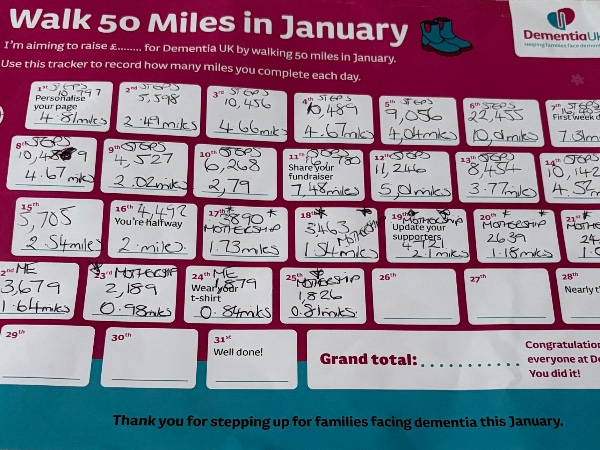 Walk 50 Miles in January
DementiaUK
Helping families face demen
I'm aiming to raise £........ for Dementia UK by walking 50 miles in January.
Use this tracker to record how many miles you complete each day.
1st STEPS
10,797
Personalise
your page
4.81miles
2nd STEPS
5,598
2.49miles
3rd STEPS
10,456
4.66miles
4th STEPS
10,489
4.67miles
5th STEPS
9,056
4,04miles
6th STEPS
22,455
10,01miles
7th STEPS
First week d
7.31m
8th STEPS
4.67miles
9th STEPS
4,527
2.02miles
10th STEPS
6,268
2,79
11th STEPS
16,780
Share your
fundraiser
7,48miles
12th STEPS
11,246
5,01miles
13th STEPS
8,454
3.77miles
14th STEPS
10,142
4.52m
15th
5,705
2.54miles
16th 4,492
You're halfway
2.miles.
17th
3890
MOTHERSHIP
1.73miles
18th
3463
MOTHERSHIP
1.54miles
19th MOTHERSHIP
Update your
supporters
2.1miles
20th
MOTHERSHIP
2639
1.18miles
21st
MOTHE
24
1.
2nd ME
3,679
1.64miles
23rd MOTHERSHIP
2,189
0.98miles
24th ME
1,879
Wear your
t-shirt
0.84miles
25th
MOTHERSHIP
1,826
0.81miles.
26th
27th
28th
Nearly t
29th
30th
31st
Well done!
Grand total: ............
Congratulation
everyone at De
You did it!
Thank you for stepping up for families facing dementia this January.